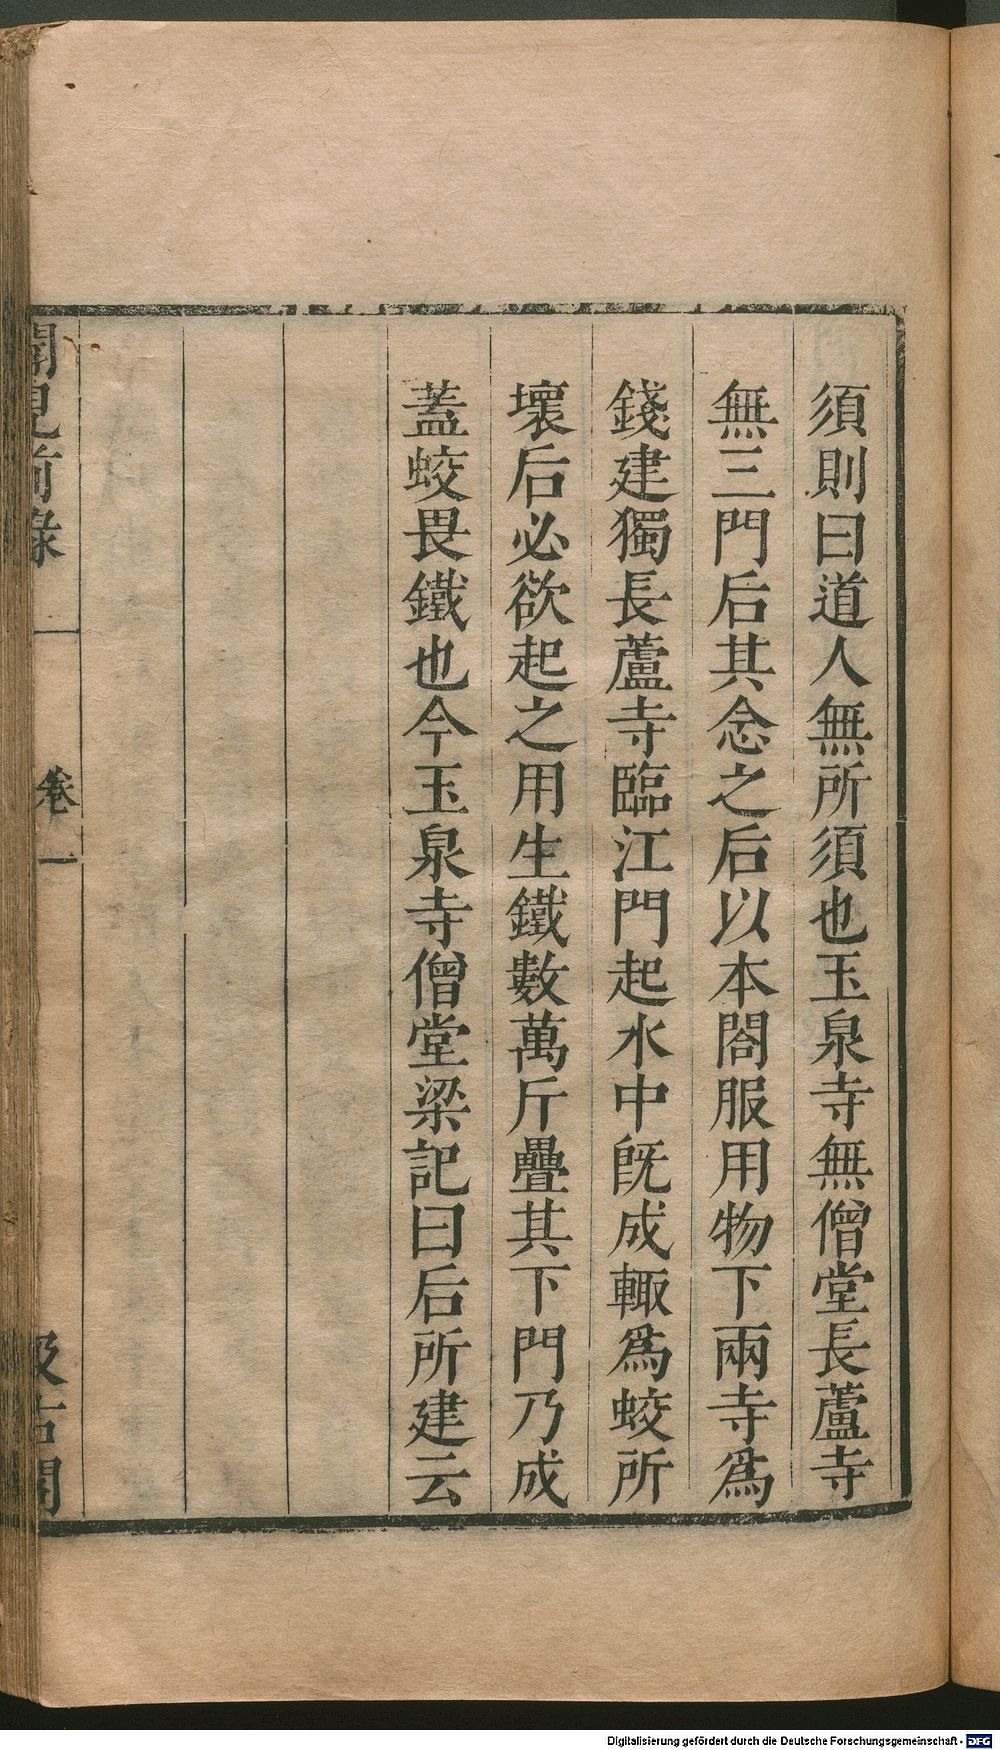 須則曰道人無所須也玉泉寺無僧堂長蘆寺
無三門后其念之后以本閤服用物下兩寺爲
錢建獨長蘆寺臨江門起水中旣成輙爲蛟所
壞后必欲起之用生鐵數萬斤疊其下門乃成
蓋蛟畏鐵也今玉泉寺僧堂梁記曰后所建云
聞見前錄
卷一
汲古閣
Digitalisierung gefördert durch die Deutsche Forschungsgemeinschaft - DFG